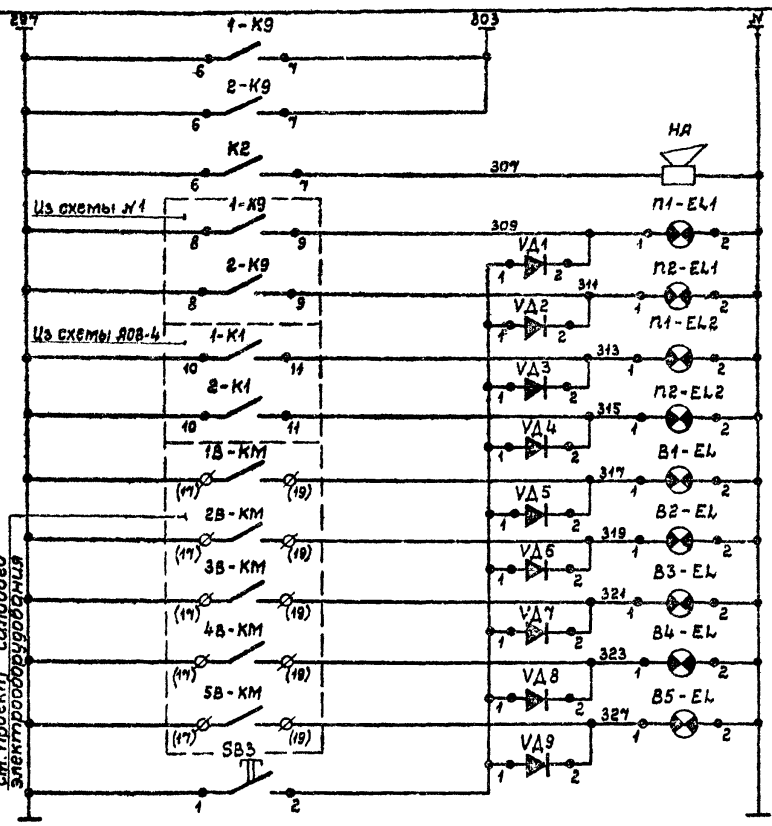 803
N
1-К9
6 7
2-К9
6 7
К2
6 7
307
НА
Из схемы №1
1-К9
8 9
309
П1-EL1
1 2
ВД1
1 2
2-К9
8 9
311
П2-EL1
1 2
ВД2
1 2
Из схемы
1-К1
10 11
313
П1-EL2
1 2
ВД3
1 2
2-К1
10 11
315
П2-EL2
1 2
ВД4
1 2
1В-КМ
(17) (19)
317
В1-EL
1 2
ВД5
1 2
2В-КМ
(17) (19)
319
В2-EL
1 2
ВД6
1 2
3В-КМ
(17) (19)
321
В3-EL
1 2
ВД7
1 2
4В-КМ
(17) (19)
323
В4-EL
1 2
ВД8
1 2
5В-КМ
(17) (19)
327
В5-EL
1 2
ВД9
1 2
SB3
1 2
см. проект силового
электрооборудования